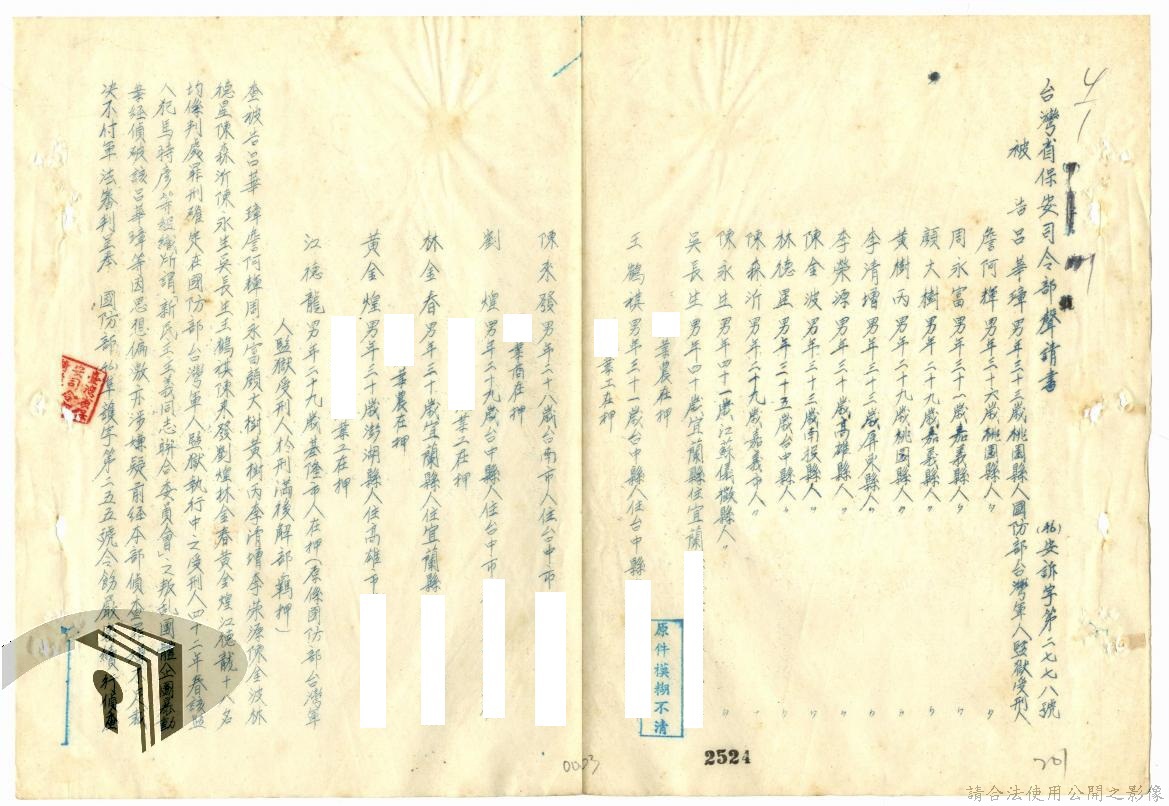 台灣省保安司令部聲請書
(46)安訴字第二七七八號
被告 呂華璋男年三十三歲桃園縣人國防部台灣軍人監獄受刑人
詹阿輝男年二十六歲桃園縣人〃 〃
周永富男年三十一歲嘉義縣人〃 〃
顏大樹男年二十九歲嘉義縣人〃 〃
黃樹丙男年二十九歲桃園縣人〃 〃
李清增男年三十三歲屏東縣人〃 〃
李榮源男年三十歲高雄縣人〃 〃
陳金波男年三十三歲南投縣人〃 〃
林德星男年三十五歲台中縣人〃 〃
陳森沂男年二十九歲嘉義市人〃 〃
陳永生男年四十一歲江蘇儀徵縣人〃 〃
吳長生男年四十歲宜蘭縣住宜蘭
業農在押
王鶴祺男年三十一歲台中縣人住台中縣
業工在押
陳來發男年二十八歲台南市人住台中市
業商在押
劉煌男年二十九歲台中縣人住台中市
業工在押
林金春男年三十歲宜蘭縣人住宜蘭縣
業農在押
黃金煌男年三十歲澎湖縣人住高雄市
業工在押
江德龍男年二十九歲基隆市人在押(原係國防部台灣軍
人監獄受刑人於刑滿後解部羈押)
查被告呂華璋詹阿輝周永富顏大樹黃樹丙李清增李榮源陳金波林
德星陳森沂陳永生吳長生王鶴祺陳來發劉煌林金春黃金煌江德龍十八名
均係判處罪刑確定在國防部台灣軍人監獄執行中之受刑人四十二年春該監
人犯馬時彥等組織所謂「新民主主義同志聯合委員會」之叛乱團體企圖暴動
案經偵破該呂華璋等因思想偏激亦涉嫌疑前經本部偵查
決不付軍法審判呈奉 國防部 覆字第二五五號令飭嚴 續行偵查
原件模糊不清
2524
0003
201
請合法使用公開之影像